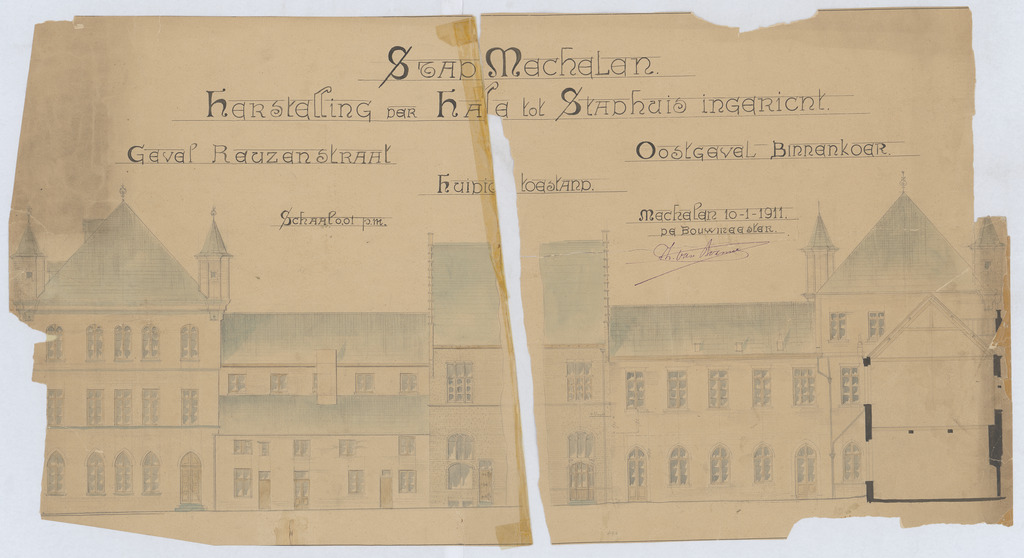 Stad Mechelen.
Herstelling der Halle tot Stadhuis ingericht.
Gevel Reuzenstraat
Oostgevel Binnenkoer.
Huidige toestand.
Schaal 0,01 p.m.
Mechelen 10-1-1911.
De Bouwmeester.